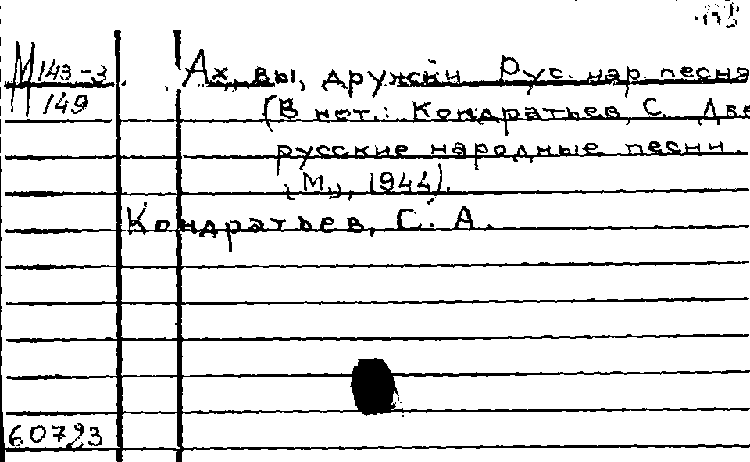 М 143-3
149
Ах, вы, дружки Рус. нар песня
(В нот.: Кондратьев, С. Две
русские народные песни.
М., 1944).
Кондратьев, С. А.
60793